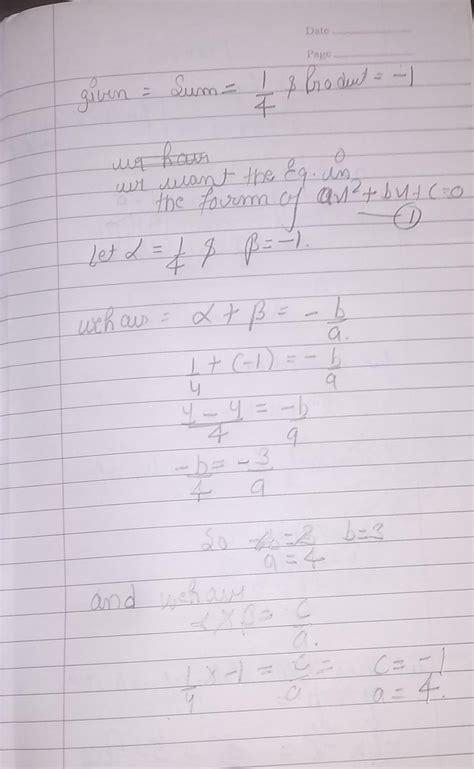 Date
Page
given = Sum = 1/4 & Product = -1
we have
we want the Eq. in
the form of ax² + bx + c = 0
①
Let α = 1/4 & β = -1.
we have = α + β = - b/a.
1/4 + (-1) = - b/a
4 - 4/4 = -b/a
-b/4 = -3/a
So b=3
a = 4
and we have
α × β = c/a.
1/4 × -1 = c/a = c = -1
a = 4.